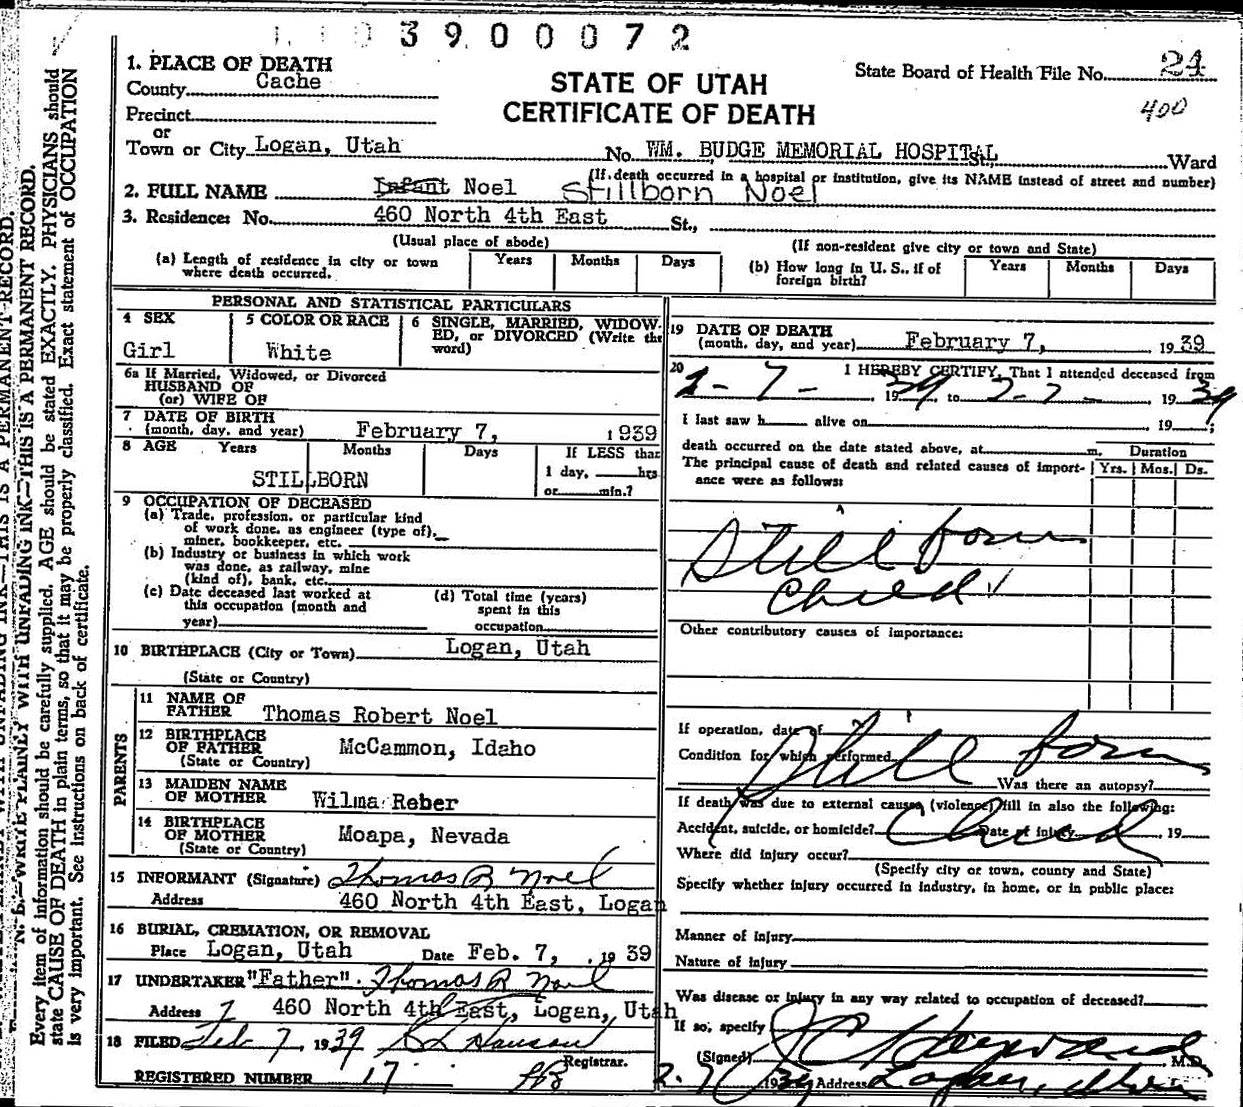 3900072
1. PLACE OF DEATH
County Cache
STATE OF UTAH
CERTIFICATE OF DEATH
State Board of Health File No. 24
400
Precinct
or
Town or City Logan, Utah No. WM. BUDGE MEMORIAL HOSPITAL Ward
(If death occurred in a hospital or institution, give its NAME instead of street and number)
2. FULL NAME Infant Noel Stillborn Noel
3. Residence: No. 460 North 4th East St.,
(Usual place of abode) (If non-resident give city or town and State)
(a) Length of residence in city or town where death occurred. Years Months Days
(b) How long in U. S., if of foreign birth? Years Months Days
PERSONAL AND STATISTICAL PARTICULARS
4 SEX Girl
5 COLOR OR RACE White
6 SINGLE, MARRIED, WIDOW-
ED, or DIVORCED (Write the
word)
6a If Married, Widowed, or Divorced
HUSBAND OF
(or) WIFE OF
7 DATE OF BIRTH
(month, day, and year) February 7, 1939
8 AGE Years Months Days If LESS than
1 day, hrs
or min.?
STILLBORN
9 OCCUPATION OF DECEASED
(a) Trade, profession, or particular kind
of work done, as engineer (type of),
miner, bookkeeper, etc.
(b) Industry or business in which work
was done, as railway, mine
(kind of), bank, etc.
(c) Date deceased last worked at
this occupation (month and
year)
(d) Total time (years)
spent in this
occupation
10 BIRTHPLACE (City or Town) Logan, Utah
(State or Country)
PARENTS
11 NAME OF
FATHER Thomas Robert Noel
12 BIRTHPLACE
OF FATHER McCammon, Idaho
(State or Country)
13 MAIDEN NAME
OF MOTHER Wilma Reber
14 BIRTHPLACE
OF MOTHER Moapa, Nevada
(State or Country)
15 INFORMANT (Signature) Thomas R Noel
Address 460 North 4th East, Logan
16 BURIAL, CREMATION, OR REMOVAL
Place Logan, Utah Date Feb. 7, 1939
17 UNDERTAKER "Father" Thomas R Noel
Address 460 North 4th East, Logan, Utah
18 FILED Feb 7 1939
Registrar.
REGISTERED NUMBER 17
19 DATE OF DEATH
(month, day, and year) February 7, 1939
20 I HEREBY CERTIFY, That I attended deceased from
2-7- 1939, to 2-7- 1939
I last saw h alive on 19 ;
death occurred on the date stated above, at m.
The principal cause of death and related causes of import-
ance were as follows:
Duration
Yrs. Mos. Ds.
Still born
Child
Other contributory causes of importance:
If operation, date of
Condition for which performed
Still born
Was there an autopsy?
If death was due to external causes (violence) fill in also the following:
Accident, suicide, or homicide? Date of injury 19
Child
Where did injury occur?
(Specify city or town, county and State)
Specify whether injury occurred in industry, in home, or in public place:
Manner of Injury
Nature of Injury
Was disease or injury in any way related to occupation of deceased?
If so, specify
(Signed) J C Hayward M.D.
2-7 1939 Address Logan, Utah
N. B.—WRITE PLAINLY WITH UNFADING INK—THIS IS A PERMANENT RECORD.
Every item of information should be carefully supplied. AGE should be stated EXACTLY. PHYSICIANS should
state CAUSE OF DEATH in plain terms, so that it may be properly classified. Exact statement of OCCUPATION
is very important. See instructions on back of certificate.